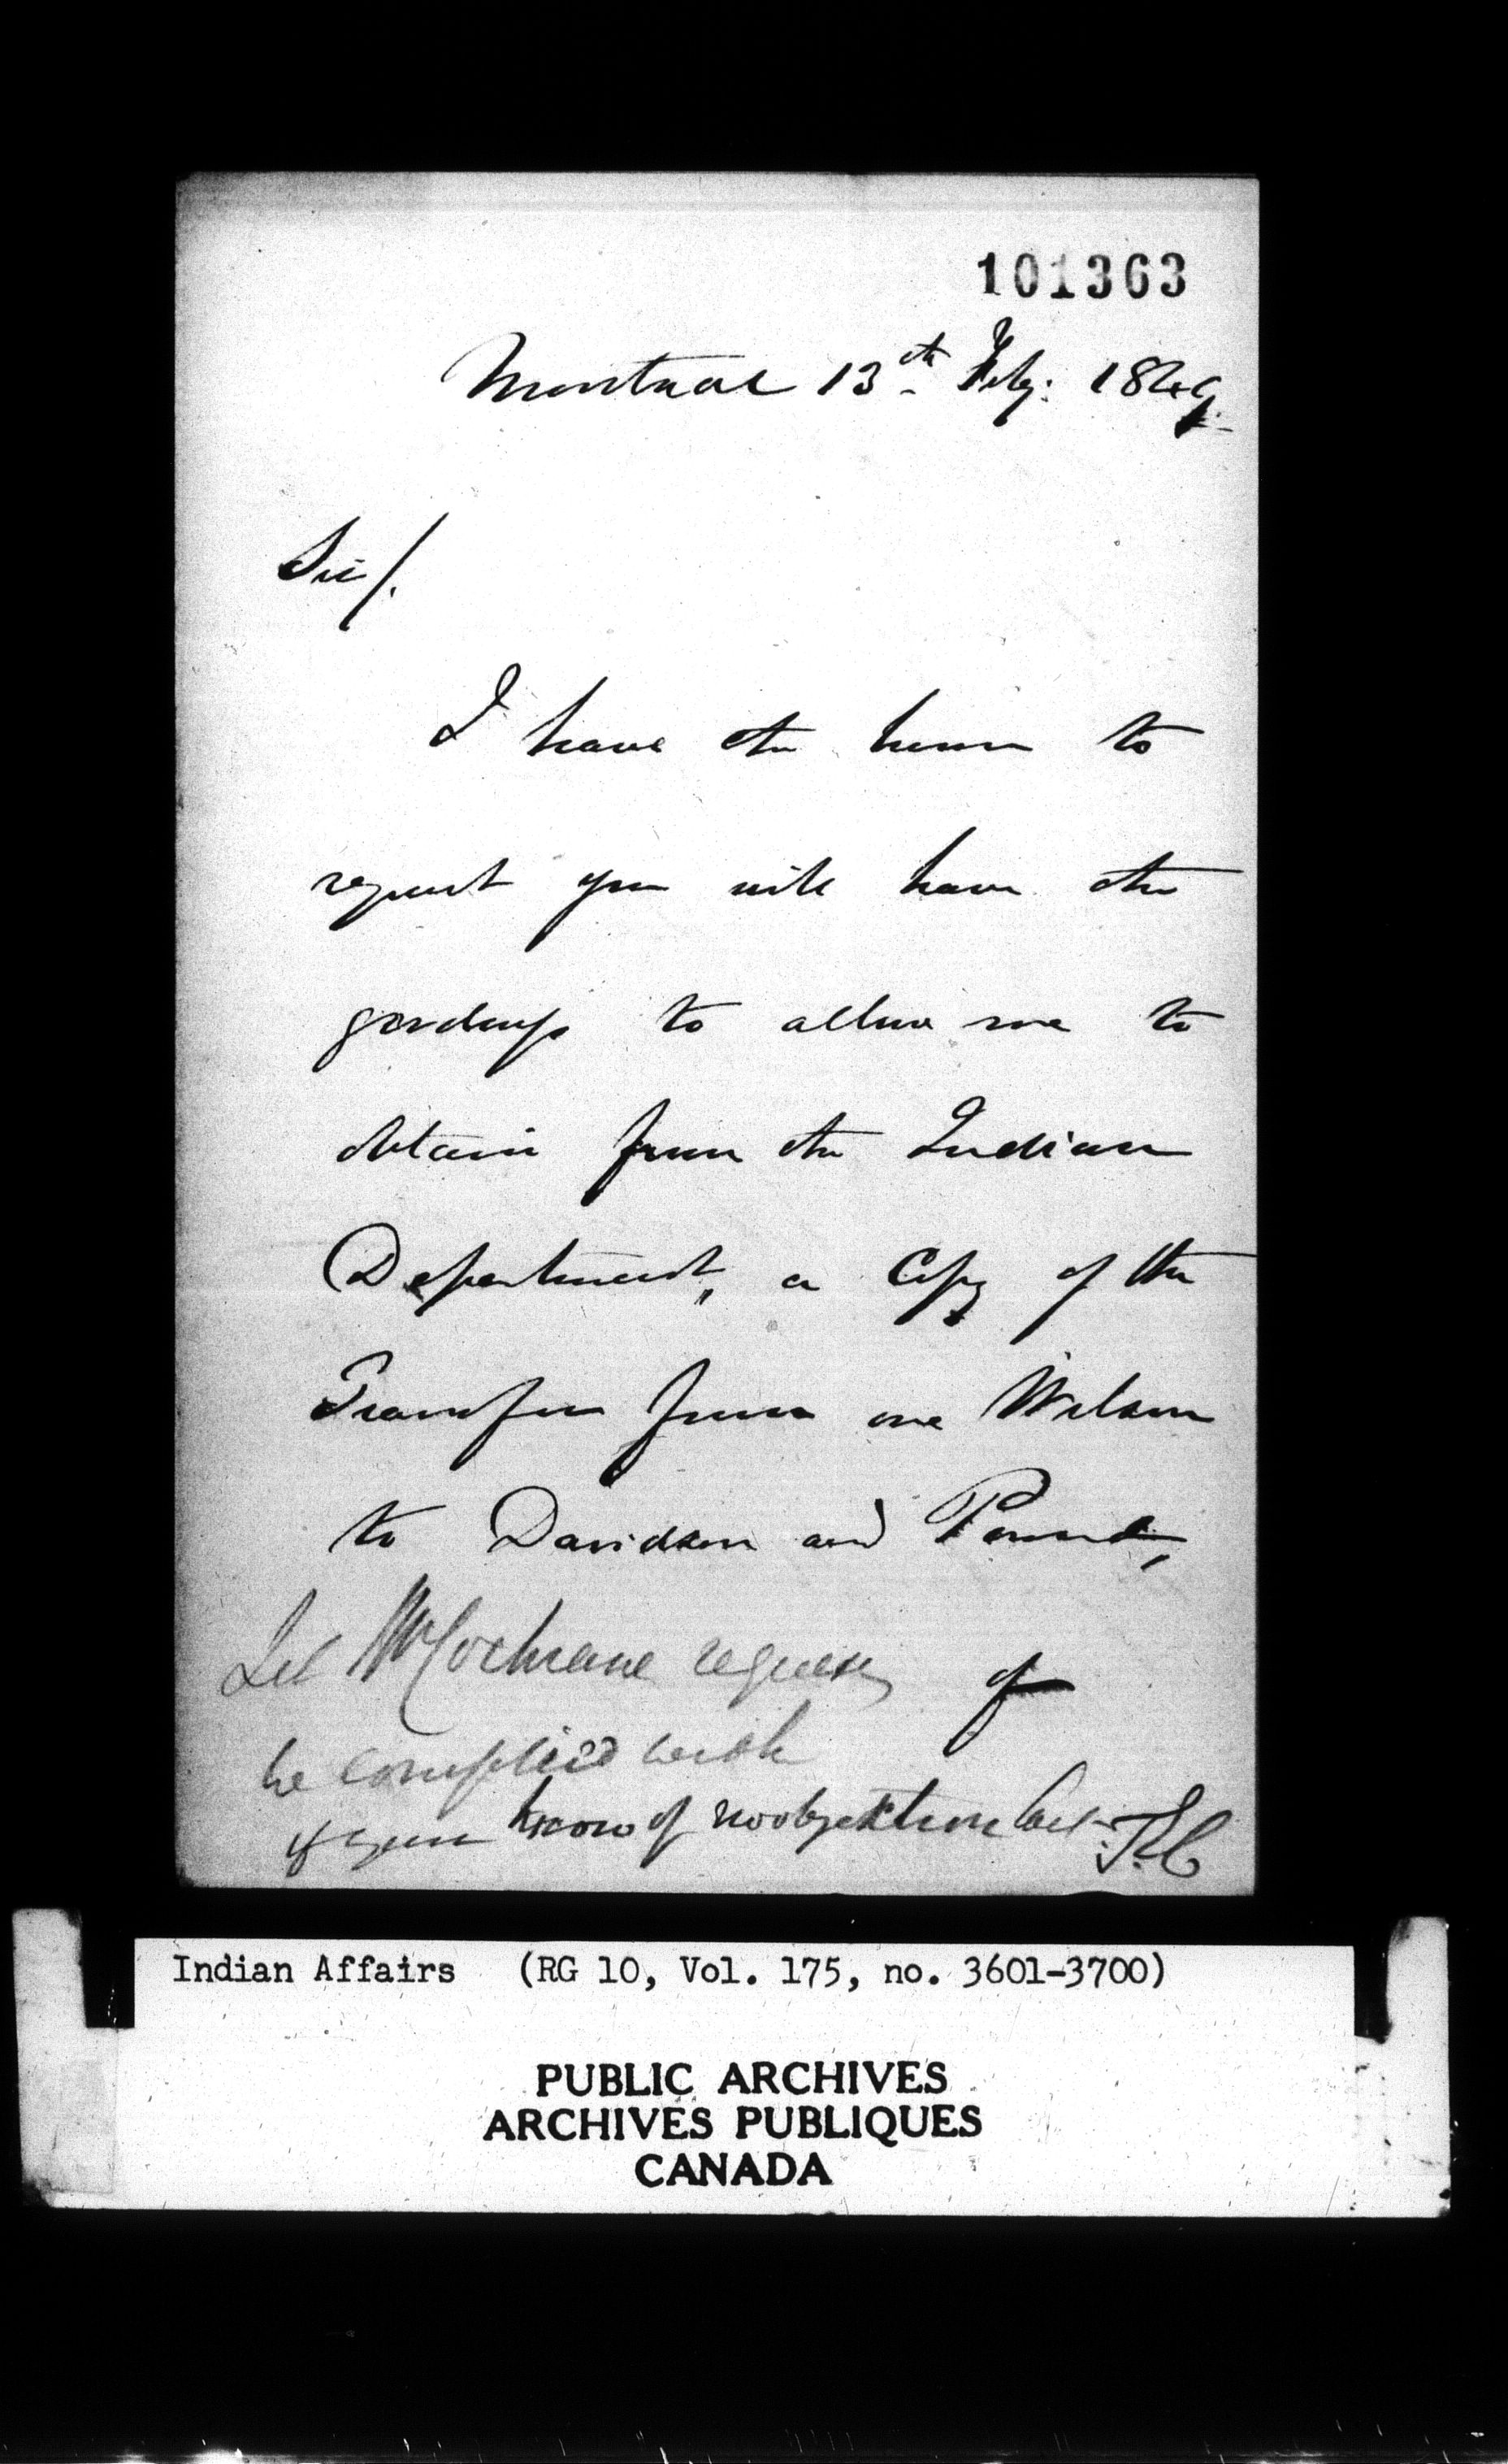 101363
Montreal 13th Feby: 1849.
Sir/.
I have the honor to
request you will have the
goodness to allow me to
obtain from the Indian
Department, a Copy of the
Transfer from one Wilson
to Davidson and
of
Let Mr Cochrane request
be complied with
if you know of no objection
T.E.C
Indian Affairs (RG 10, Vol. 175, no. 3601-3700)
PUBLIC ARCHIVES
ARCHIVES PUBLIQUES
CANADA